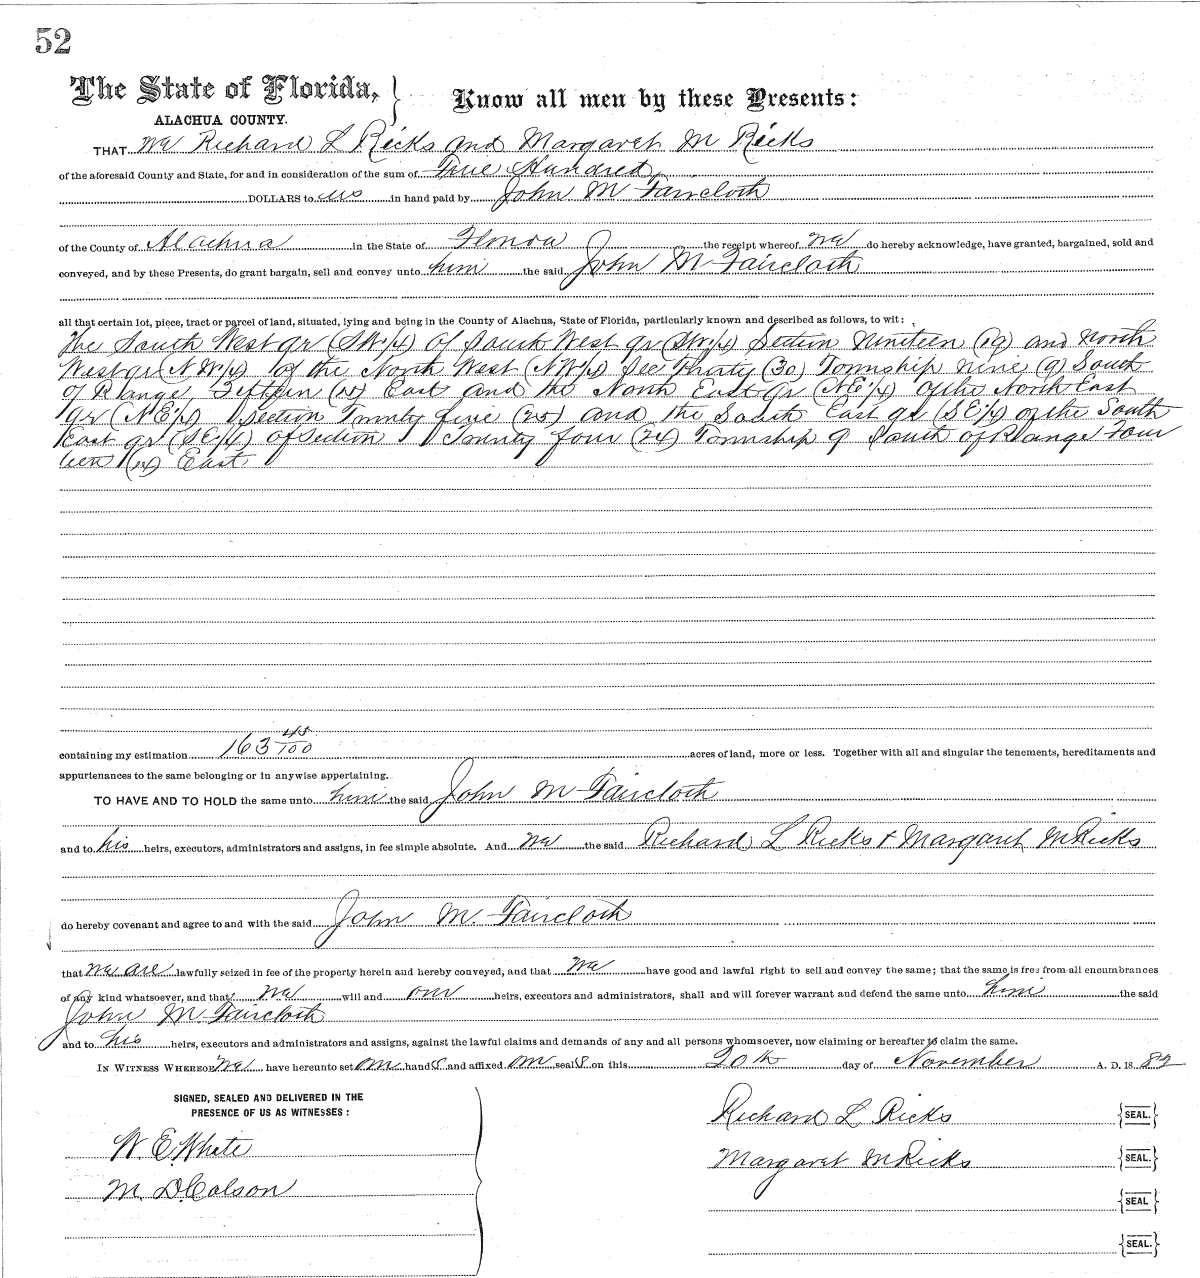 52
The State of Florida, } Know all men by these Presents:
ALACHUA COUNTY.
THAT we Richard L Ricks and Margaret M Ricks
of the aforesaid County and State, for and in consideration of the sum of Five Hundred
DOLLARS to us in hand paid by John M Faircloth
of the County of Alachua in the State of Florida the receipt whereof we do hereby acknowledge, have granted, bargained, sold and
conveyed, and by these Presents, do grant bargain, sell and convey unto him the said John M Faircloth
all that certain lot, piece, tract or parcel of land, situated, lying and being in the County of Alachua, State of Florida, particularly known and described as follows, to wit:
The South West qr (SW¼) of South West qr (SW¼) Section Nineteen (19) and North
West qr (NW¼) of the North West (NW¼) Sec Thirty (30) Township nine (9) South
of Range Fifteen (15) East and the North East qr (NE¼) of the North East
qr (NE¼) Section Twenty five (25) and the South East qr (SE¼) of the South
East qr (SE¼) of Section Twenty four (24) Township 9 South of Range Four
teen (14) East
containing my estimation 163 45/100 acres of land, more or less. Together with all and singular the tenements, hereditaments and
appurtenances to the same belonging or in anywise appertaining.
TO HAVE AND TO HOLD the same unto him the said John M Faircloth
and to his heirs, executors, administrators and assigns, in fee simple absolute. And we the said Richard L Ricks & Margaret M Ricks
do hereby covenant and agree to and with the said John M. Faircloth
that we are lawfully seized in fee of the property herein and hereby conveyed, and that we have good and lawful right to sell and convey the same; that the same is free from all encumbrances
of any kind whatsoever, and that we will and our heirs, executors and administrators, shall and will forever warrant and defend the same unto him the said
John M Faircloth
and to his heirs, executors and administrators and assigns, against the lawful claims and demands of any and all persons whomsoever, now claiming or hereafter to claim the same.
IN WITNESS WHEREOF we have hereunto set our hands and affixed our seals on this 20th day of November A. D. 18 82
SIGNED, SEALED AND DELIVERED IN THE
PRESENCE OF US AS WITNESSES:
Richard L Ricks {SEAL.}
W. E. White
Margaret M Ricks {SEAL.}
M. D. Colson
{SEAL}
{SEAL.}